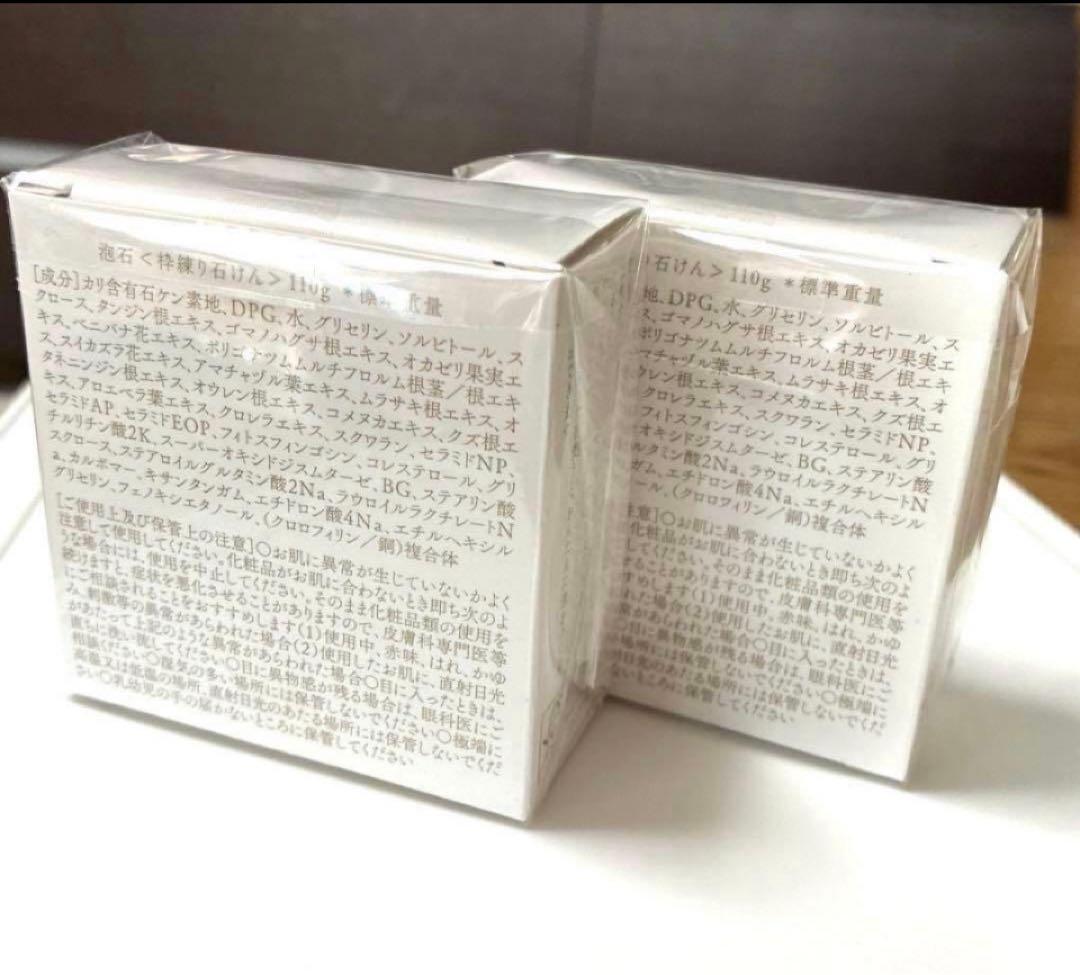 泡石＜枠練り石けん＞110g ＊標準重量
[成分]カリ含有石ケン素地、DPG、水、グリセリン、ソルビトール、ス
クロース、タンジン根エキス、ゴマノハグサ根エキス、オカゼリ果実エ
キス、ベニバナ花エキス、ポリゴナツムムルチフロルム根茎／根エキ
ス、スイカズラ花エキス、アマチャヅル葉エキス、ムラサキ根エキス、オ
タネニンジン根エキス、オウレン根エキス、コメヌカエキス、クズ根エ
キス、アロエベラ葉エキス、クロレラエキス、スクワラン、セラミドNP、
セラミドAP、セラミドEOP、フィトスフィンゴシン、コレステロール、グリ
チルリチン酸2K、スーパーオキシドジスムターゼ、BG、ステアリン酸
スクロース、ステアロイルグルタミン酸2Na、ラウロイルラクチレートN
a、カルボマー、キサンタンガム、エチドロン酸4Na、エチルヘキシル
グリセリン、フェノキシエタノール、(クロロフィリン／銅)複合体
[ご使用上及び保管上の注意]〇お肌に異常が生じていないかよく
注意して使用してください。化粧品がお肌に合わないとき即ち次のよ
うな場合には、使用を中止してください。そのまま化粧品類の使用を
続けますと、症状を悪化させることがありますので、皮膚科専門医等
にご相談されることをおすすめします(1)使用中、赤味、はれ、かゆ
み、刺激等の異常があらわれた場合(2)使用したお肌に、直射日光
があたって上記のような異常があらわれた場合〇目に入ったときは、
直ちに洗い流してください〇目に異物感が残る場合は、眼科医にご
相談ください〇湿気の多い場所には保管しないでください〇極端に
高温又は低温の場所、直射日光のあたる場所には保管しないでくだ
さい〇乳幼児の手の届かないところに保管してください
り石けん＞110g ＊標準重量
地、DPG、水、グリセリン、ソルビトール、ス
ス、ゴマノハグサ根エキス、オカゼリ果実エ
ポリゴナツムムルチフロルム根茎／根エキ
マチャヅル葉エキス、ムラサキ根エキス、オ
ウレン根エキス、コメヌカエキス、クズ根エ
クロレラエキス、スクワラン、セラミドNP、
フィトスフィンゴシン、コレステロール、グリ
オキシドジスムターゼ、BG、ステアリン酸
ルタミン酸2Na、ラウロイルラクチレートN
ガム、エチドロン酸4Na、エチルヘキシル
ール、(クロロフィリン／銅)複合体
注意]〇お肌に異常が生じていないかよく
化粧品がお肌に合わないとき即ち次のよ
してください。そのまま化粧品類の使用を
ることがありますので、皮膚科専門医等
すめします(1)使用中、赤味、はれ、かゆ
れた場合(2)使用したお肌に、直射日光
常があらわれた場合〇目に入ったときは、
目に異物感が残る場合は、眼科医にご
場所には保管しないでください〇極端に
日光のあたる場所には保管しないでくだ
ないところに保管してください